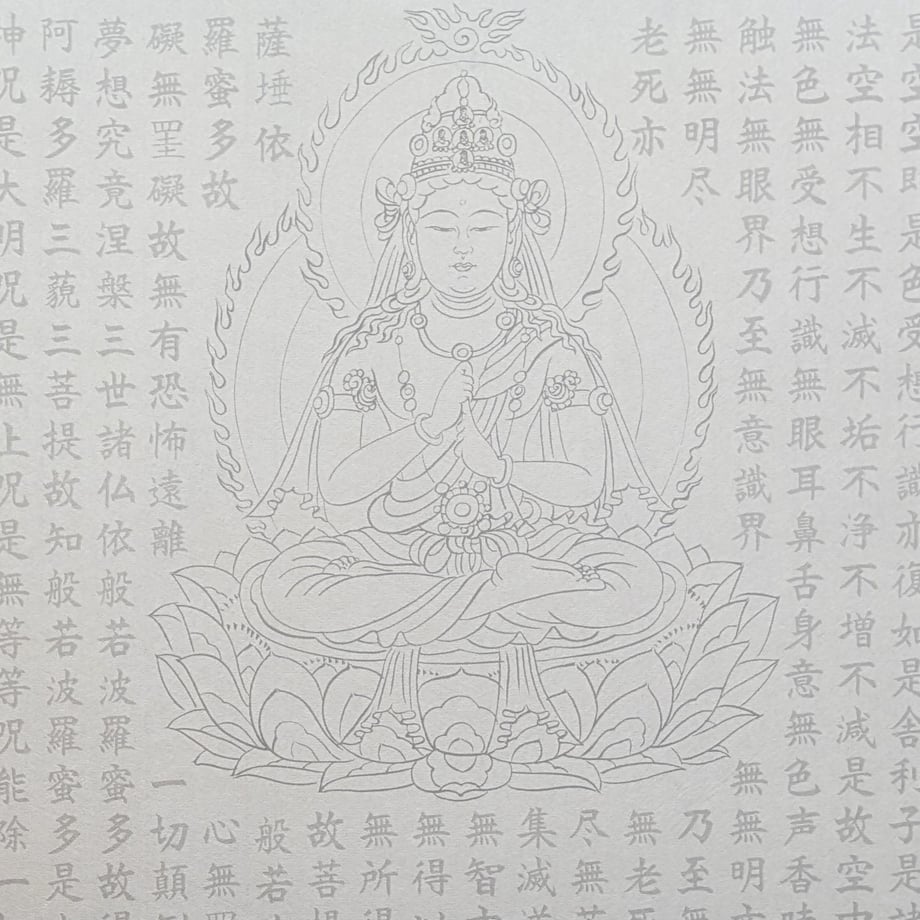 是空空即是色受想行識亦復如是舎利子是
法空相不生不滅不垢不浄不増不減是故空
無色無受想行識無眼耳鼻舌身意無色声香
触法無眼界乃至無意識界無無明
無無明尽乃至無
老死亦無老死
尽無苦
集滅道
無智
無得以
無所得
故菩提
薩埵依般若
羅蜜多故心無罣
礙無罣礙故無有恐怖遠離一切顛
夢想究竟涅槃三世諸仏依般若波羅蜜多故得
阿耨多羅三藐三菩提故知般若波羅蜜多是
神呪是大明呪是無上呪是無等等呪能除一